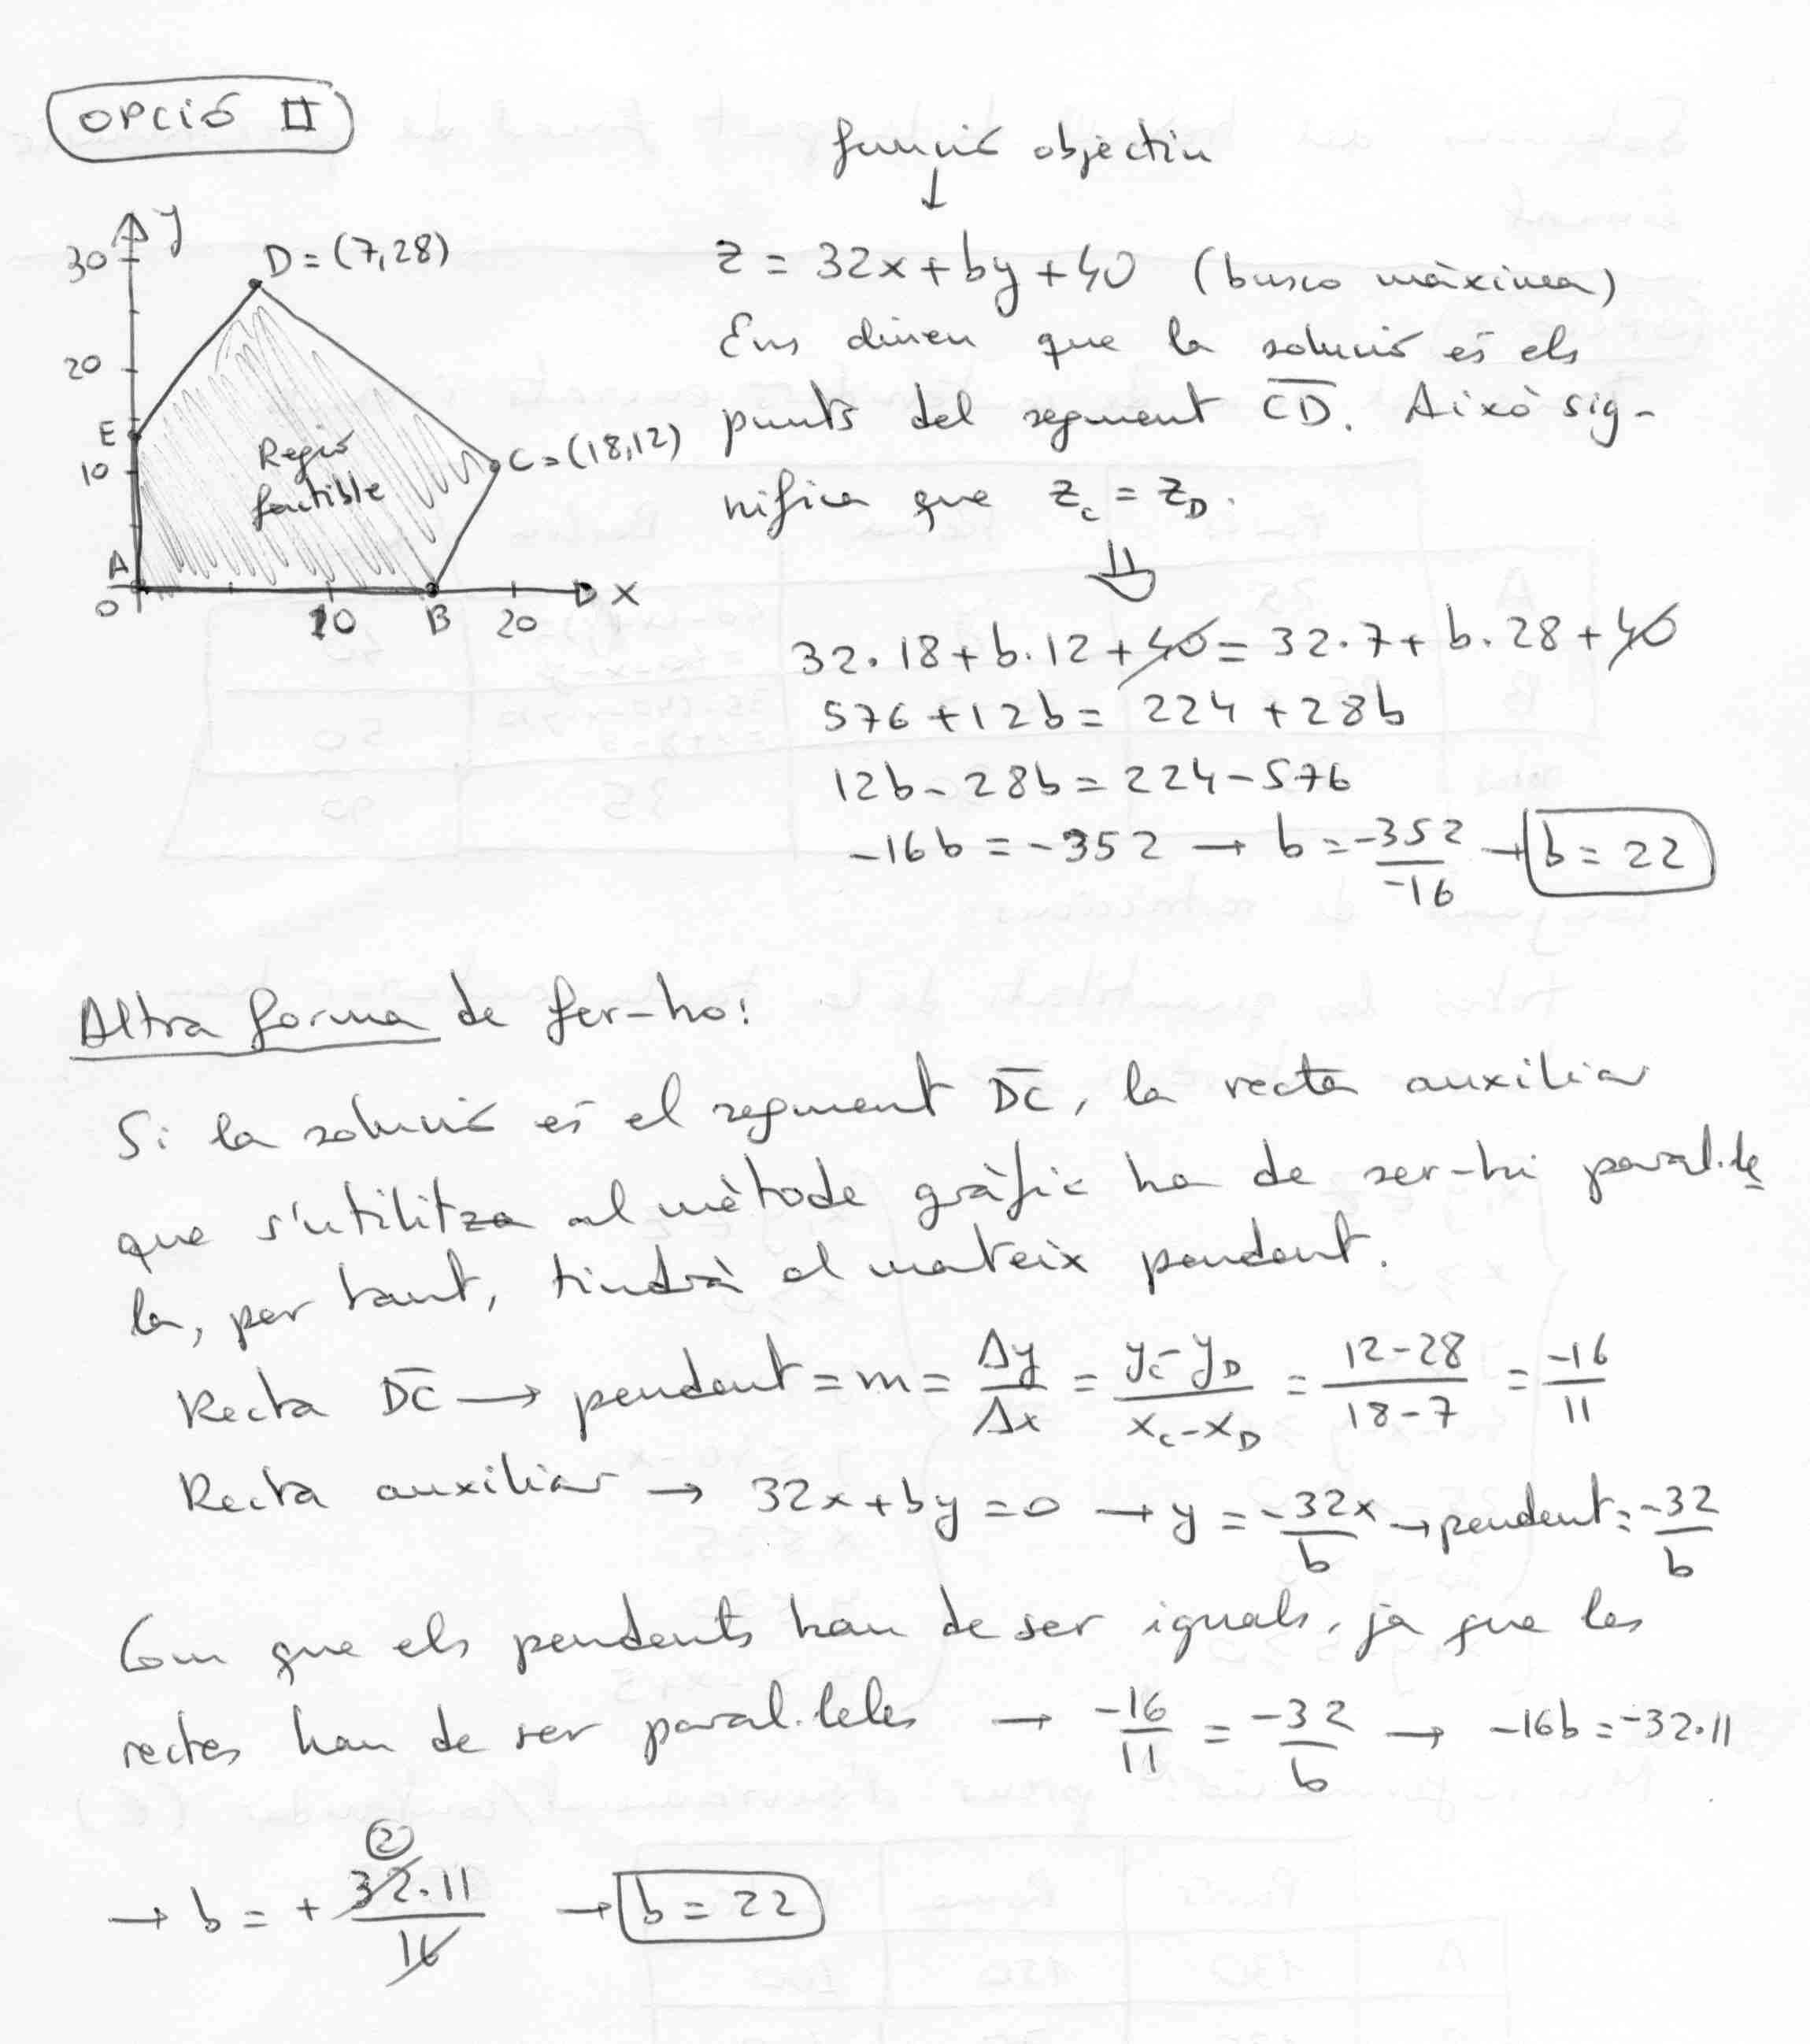 OPCIÓ II
funció objectiu
↓
z = 32x + by + 40 (busco màxima)
Ens diuen que la solució és els
punts del segment C̅D̅. Això sig-
nifica que z_C = z_D.
⇓
32·18 + b·12 + 40 = 32·7 + b·28 + 40
576 + 12b = 224 + 28b
12b - 28b = 224 - 576
-16b = -352 → b = -352/-16 → b = 22
y
30
D = (7,28)
20
E
10
C = (18,12)
Regió
factible
A
0
10
B
20
x
Altra forma de fer-ho:
Si la solució és el segment D̅C̅, la recta auxiliar
que s'utilitza al mètode gràfic ha de ser-hi paral·le
la, per tant, tindrà el mateix pendent.
Recta D̅C̅ → pendent = m = Δy/Δx = (y_C - y_D)/(x_C - x_D) = (12-28)/(18-7) = -16/11
Recta auxiliar → 32x + by = 0 → y = -32x/b → pendent = -32/b
Com que els pendents han de ser iguals, ja que les
rectes han de ser paral·leles → -16/11 = -32/b → -16b = -32·11
②
→ b = + 32·11/16 → b = 22